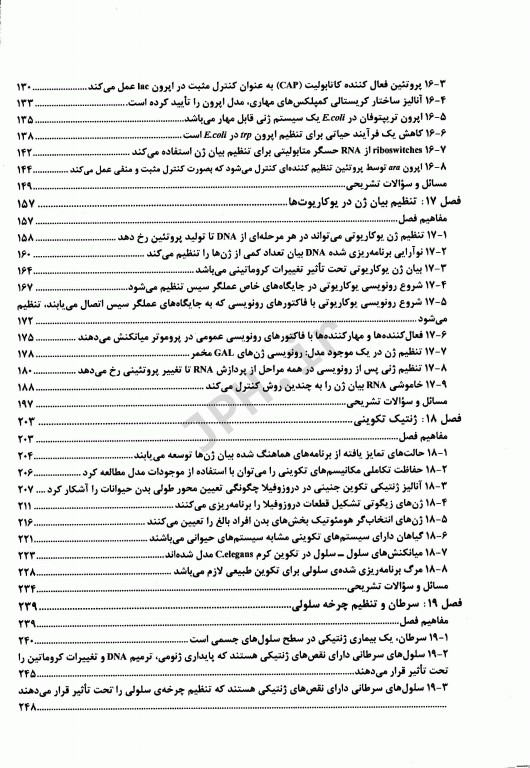 ۱۶-۳ پروتئین فعال کننده کاتابولیت (CAP) به عنوان کنترل مثبت در اپرون lac عمل می‌کند ۱۳۰
۱۶-۴ آنالیز ساختار کریستالی کمپلکس‌های مهاری، مدل اپرون را تأیید کرده است. ۱۳۳
۱۶-۵ اپرون تریپتوفان در E.coli یک سیستم ژنی قابل مهار می‌باشد ۱۳۵
۱۶-۶ کاهش یک فرآیند حیاتی برای تنظیم اپرون trp در E.coli است ۱۳۸
۱۶-۷ riboswitches از RNA حسگر متابولیتی برای تنظیم بیان ژن استفاده می‌کند ۱۴۲
۱۶-۸ اپرون ara توسط پروتئین تنظیم کننده‌ای کنترل می‌شود که بصورت کنترل مثبت و منفی عمل می‌کند ۱۴۴
مسائل و سؤالات تشریحی ۱۴۹
فصل ۱۷: تنظیم بیان ژن در یوکاریوت‌ها ۱۵۷
مفاهیم فصل ۱۵۷
۱۷-۱ تنظیم ژن یوکاریوتی می‌تواند در هر مرحله‌ای از DNA تا تولید پروتئین رخ دهد ۱۵۸
۱۷-۲ نوآرایی برنامه‌ریزی شده DNA بیان تعداد کمی از ژن‌ها را تنظیم می‌کند ۱۶۰
۱۷-۳ بیان ژن یوکاریوتی تحت تأثیر تغییرات کروماتینی می‌باشد ۱۶۴
۱۷-۴ شروع رونویسی یوکاریوتی در جایگاه‌های خاص عملگر سیس تنظیم می‌شود ۱۶۷
۱۷-۵ شروع رونویسی یوکاریوتی با فاکتورهای رونویسی که به جایگاه‌های عملگر سیس اتصال می‌یابند، تنظیم
می‌شود ۱۷۲
۱۷-۶ فعال‌کننده‌ها و مهارکننده‌ها با فاکتورهای رونویسی عمومی در پروموتر میانکنش می‌دهند ۱۷۵
۱۷-۷ تنظیم ژن در یک موجود مدل: رونویسی ژن‌های GAL مخمر ۱۷۸
۱۷-۸ تنظیم ژنی پس از رونویسی در همه مراحل از پردازش RNA تا تغییر پروتئینی رخ می‌دهد ۱۸۰
۱۷-۹ خاموشی RNA بیان ژن را به چندین روش کنترل می‌کند ۱۸۸
مسائل و سؤالات تشریحی ۱۹۷
فصل ۱۸: ژنتیک تکوینی ۲۰۳
مفاهیم فصل ۲۰۳
۱۸-۱ حالت‌های تمایز یافته از برنامه‌های هماهنگ شده بیان ژن‌ها توسعه می‌یابند ۲۰۴
۱۸-۲ حفاظت تکاملی مکانیسم‌های تکوینی را می‌توان با استفاده از موجودات مدل مطالعه کرد ۲۰۶
۱۸-۳ آنالیز ژنتیکی تکوین جنینی در دروزوفیلا چگونگی تعیین محور طولی بدن حیوانات را آشکار کرد ۲۰۷
۱۸-۴ ژن‌های زیگوتی تشکیل قطعات دروزوفیلا را برنامه‌ریزی می‌کنند ۲۱۱
۱۸-۵ ژن‌های انتخاب‌گر هومئوتیک بخش‌های بدن افراد بالغ را تعیین می‌کنند ۲۱۶
۱۸-۶ گیاهان دارای سیستم‌های تکوینی مشابه سیستم‌های حیوانی می‌باشند ۲۲۱
۱۸-۷ میانکنش‌های سلول – سلول در تکوین کرم C.elegans مدل شده‌اند ۲۲۳
۱۸-۸ مرگ برنامه‌ریزی شده‌ی سلولی برای تکوین طبیعی لازم می‌باشد ۲۲۸
مسائل و سؤالات تشریحی ۲۳۴
فصل ۱۹: سرطان و تنظیم چرخه سلولی ۲۳۹
مفاهیم فصل ۲۳۹
۱۹-۱ سرطان، یک بیماری ژنتیکی در سطح سلول‌های جسمی است ۲۴۰
۱۹-۲ سلول‌های سرطانی دارای نقص‌های ژنتیکی هستند که پایداری ژنومی، ترمیم DNA و تغییرات کروماتین را
تحت تأثیر قرار می‌دهند ۲۴۵
۱۹-۳ سلول‌های سرطانی دارای نقص‌های ژنتیکی هستند که تنظیم چرخه‌ی سلولی را تحت تأثیر قرار می‌دهند
۲۴۸
JPH.ir